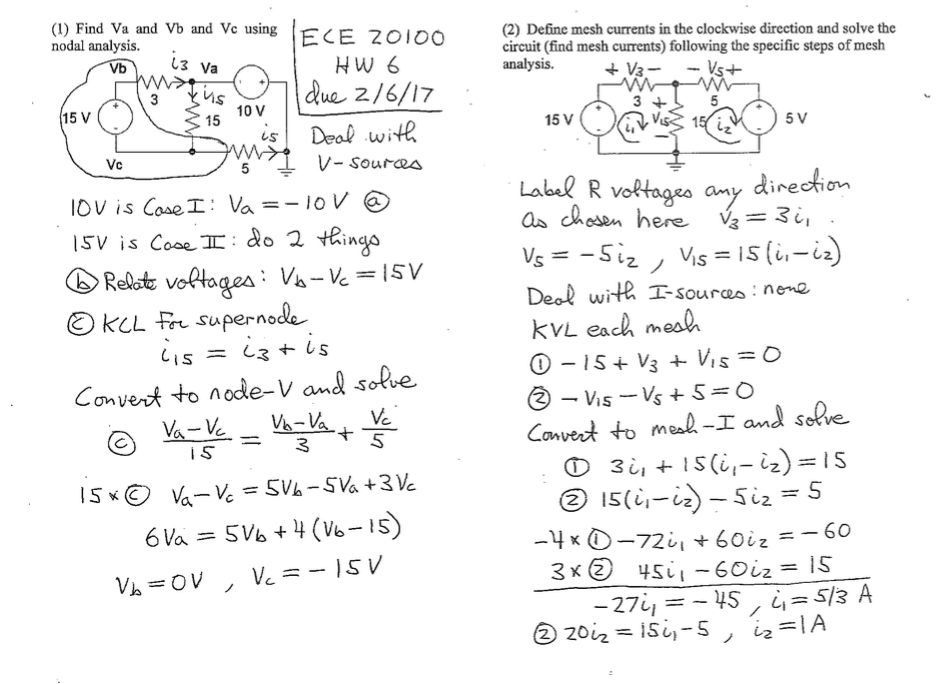 (1) Find Va and Vb and Vc using
nodal analysis.
ECE 20100
HW 6
due 2/6/17
Vb
i₃
Va
3
i₁₅
15
10 V
15 V
i₅
Vc
5
Deal with
V-sources
10V is Case I: Va = -10V ⓐ
15V is Case II: do 2 things
ⓑ Relate voltages: Vb - Vc = 15V
ⓒ KCL for supernode
i₁₅ = i₃ + i₅
Convert to node-V and solve
ⓒ (Va-Vc)/15 = (Vb-Va)/3 + Vc/5
15×ⓒ Va-Vc = 5Vb-5Va+3Vc
6Va = 5Vb + 4(Vb-15)
Vb = 0V , Vc = -15V
(2) Define mesh currents in the clockwise direction and solve the
circuit (find mesh currents) following the specific steps of mesh
analysis.
+ V₃ -
- V₅ +
3
5
15 V
i₁
+
V₁₅
-
15
i₂
5 V
Label R voltages any direction
as chosen here V₃ = 3i₁ .
V₅ = -5i₂ , V₁₅ = 15(i₁-i₂)
Deal with I-sources: none
KVL each mesh
① -15 + V₃ + V₁₅ = 0
② -V₁₅ - V₅ + 5 = 0
Convert to mesh-I and solve
① 3i₁ + 15(i₁-i₂) = 15
② 15(i₁-i₂) - 5i₂ = 5
-4×① -72i₁ + 60i₂ = -60
3×② 45i₁ - 60i₂ = 15
-27i₁ = -45 , i₁ = 5/3 A
② 20i₂ = 15i₁-5 , i₂ = 1A